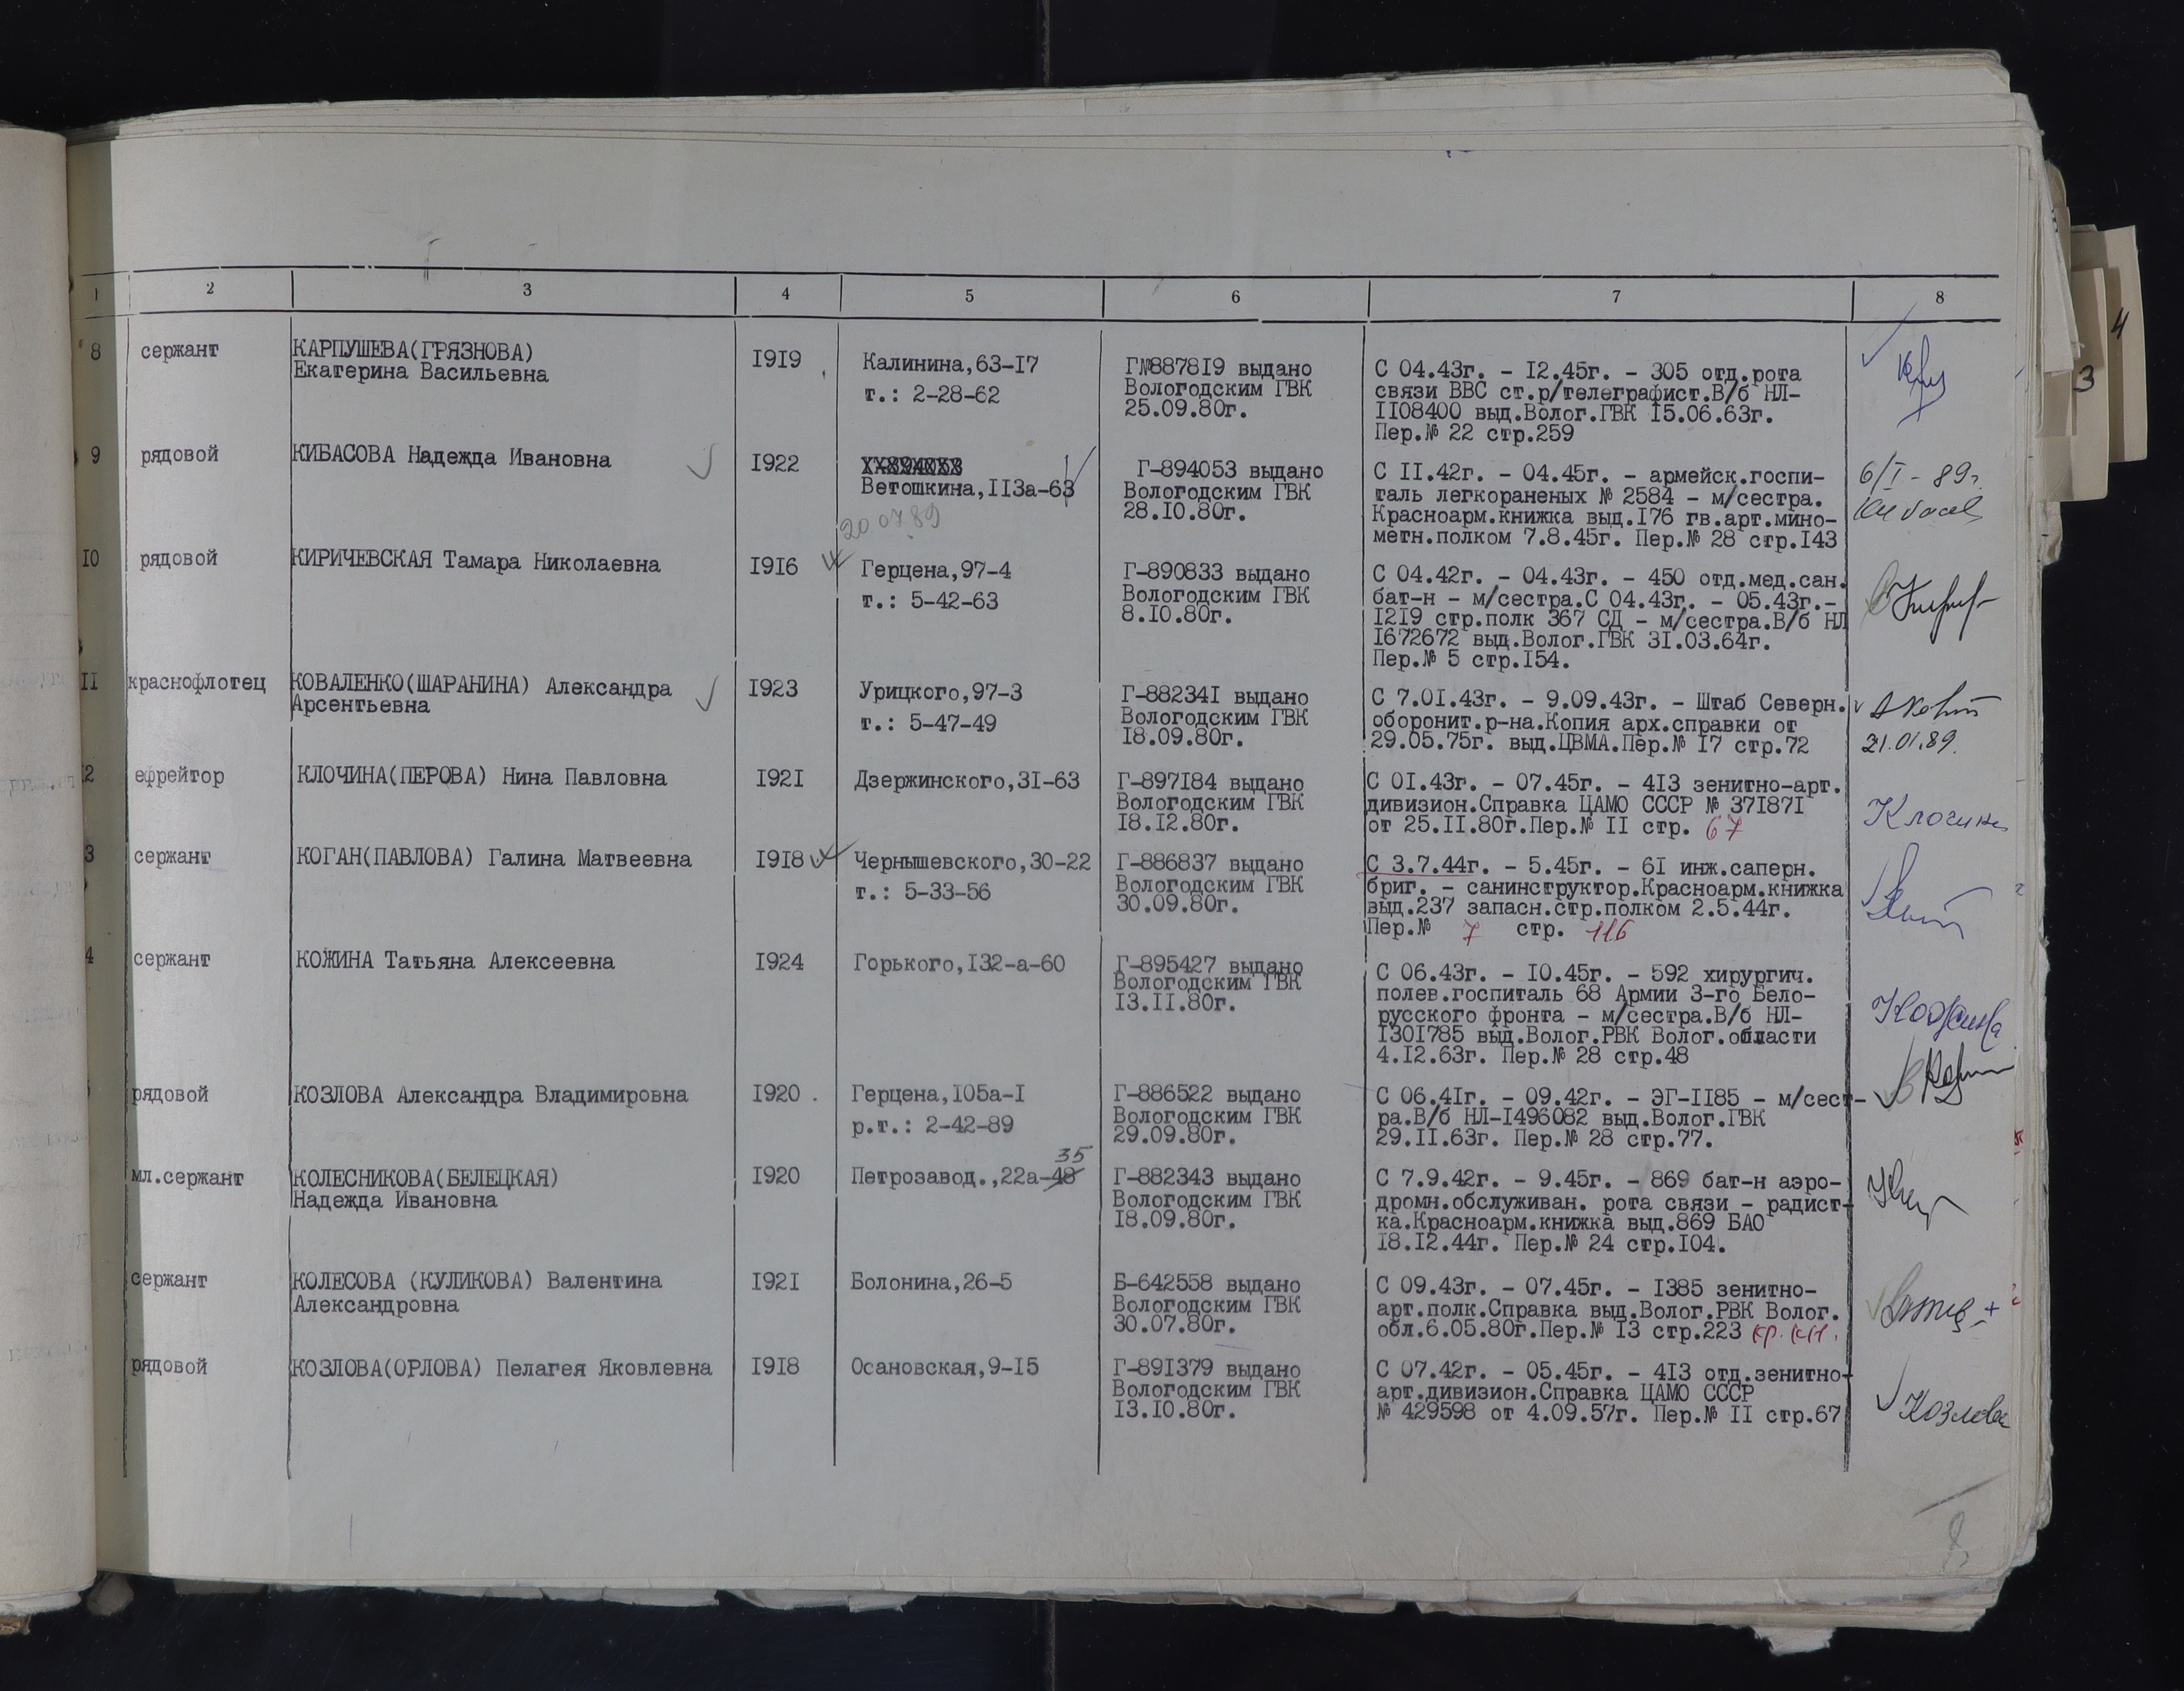 1 2 3 4 5 6 7 8
8 сержант КАРПУШЕВА(ГРЯЗНОВА) 1919 Калинина,63-17 Г№887819 выдано С 04.43г. - 12.45г. - 305 отд.рота
Екатерина Васильевна т.: 2-28-62 Вологодским ГВК связи ВВС ст.р/телеграфист.В/б НЛ-
25.09.80г. 1108400 выд.Волог.ГВК 15.06.63г.
Пер.№ 22 стр.259
9 рядовой КИБАСОВА Надежда Ивановна 1922 Г-894053 выдано С 11.42г. - 04.45г. - армейск.госпи- 6/I - 89г.
Ветошкина,113а-63 Вологодским ГВК таль легкораненых № 2584 - м/сестра.
28.10.80г. Красноарм.книжка выд.176 гв.арт.мино-
20.07.89 метн.полком 7.8.45г. Пер.№ 28 стр.143
10 рядовой КИРИЧЕВСКАЯ Тамара Николаевна 1916 Герцена,97-4 Г-890833 выдано С 04.42г. - 04.43г. - 450 отд.мед.сан.
т.: 5-42-63 Вологодским ГВК бат-н - м/сестра.С 04.43г. - 05.43г.-
8.10.80г. 1219 стр.полк 367 СД - м/сестра.В/б НЛ
1672672 выд.Волог.ГВК 31.03.64г.
Пер.№ 5 стр.154.
11 краснофлотец КОВАЛЕНКО(ШАРАНИНА) Александра 1923 Урицкого,97-3 Г-882341 выдано С 7.01.43г. - 9.09.43г. - Штаб Северн.
Арсентьевна т.: 5-47-49 Вологодским ГВК оборонит.р-на.Копия арх.справки от
18.09.80г. 29.05.75г. выд.ЦВМА.Пер.№ 17 стр.72 21.01.89.
2 ефрейтор КЛОЧИНА(ПЕРОВА) Нина Павловна 1921 Дзержинского,31-63 Г-897184 выдано С 01.43г. - 07.45г. - 413 зенитно-арт.
Вологодским ГВК дивизион.Справка ЦАМО СССР № 371871
18.12.80г. от 25.11.80г.Пер.№ 11 стр. 67 Клочина
3 сержант КОГАН(ПАВЛОВА) Галина Матвеевна 1918 Чернышевского,30-22 Г-886837 выдано С 3.7.44г. - 5.45г. - 61 инж.саперн.
т.: 5-33-56 Вологодским ГВК бриг. - санинструктор.Красноарм.книжка
30.09.80г. выд.237 запасн.стр.полком 2.5.44г.
Пер.№ 7 стр. 116
4 сержант КОЖИНА Татьяна Алексеевна 1924 Горького,132-а-60 Г-895427 выдано С 06.43г. - 10.45г. - 592 хирургич.
Вологодским ГВК полев.госпиталь 68 Армии 3-го Бело-
13.11.80г. русского фронта - м/сестра.В/б НЛ- Кожина
1301785 выд.Волог.РВК Волог.области
4.12.63г. Пер.№ 28 стр.48
рядовой КОЗЛОВА Александра Владимировна 1920 Герцена,105а-1 Г-886522 выдано С 06.41г. - 09.42г. - ЭГ-1185 - м/сест-
р.т.: 2-42-89 Вологодским ГВК ра.В/б НЛ-1496082 выд.Волог.ГВК
29.09.80г. 29.11.63г. Пер.№ 28 стр.77.
35
мл.сержант КОЛЕСНИКОВА(БЕЛЕЦКАЯ) 1920 Петрозавод.,22а-48 Г-882343 выдано С 7.9.42г. - 9.45г. - 869 бат-н аэро-
Надежда Ивановна Вологодским ГВК дромн.обслуживан. рота связи - радист-
18.09.80г. ка.Красноарм.книжка выд.869 БАО
18.12.44г. Пер.№ 24 стр.104.
сержант КОЛЕСОВА (КУЛИКОВА) Валентина 1921 Болонина,26-5 Б-642558 выдано С 09.43г. - 07.45г. - 1385 зенитно-
Александровна Вологодским ГВК арт.полк.Справка выд.Волог.РВК Волог.
30.07.80г. обл.6.05.80г.Пер.№ 13 стр.223 кр. кн.
рядовой КОЗЛОВА(ОРЛОВА) Пелагея Яковлевна 1918 Осановская,9-15 Г-891379 выдано С 07.42г. - 05.45г. - 413 отд.зенитно-
Вологодским ГВК арт.дивизион.Справка ЦАМО СССР
13.10.80г. № 429598 от 4.09.57г. Пер.№ 11 стр.67 Козлова
4
3